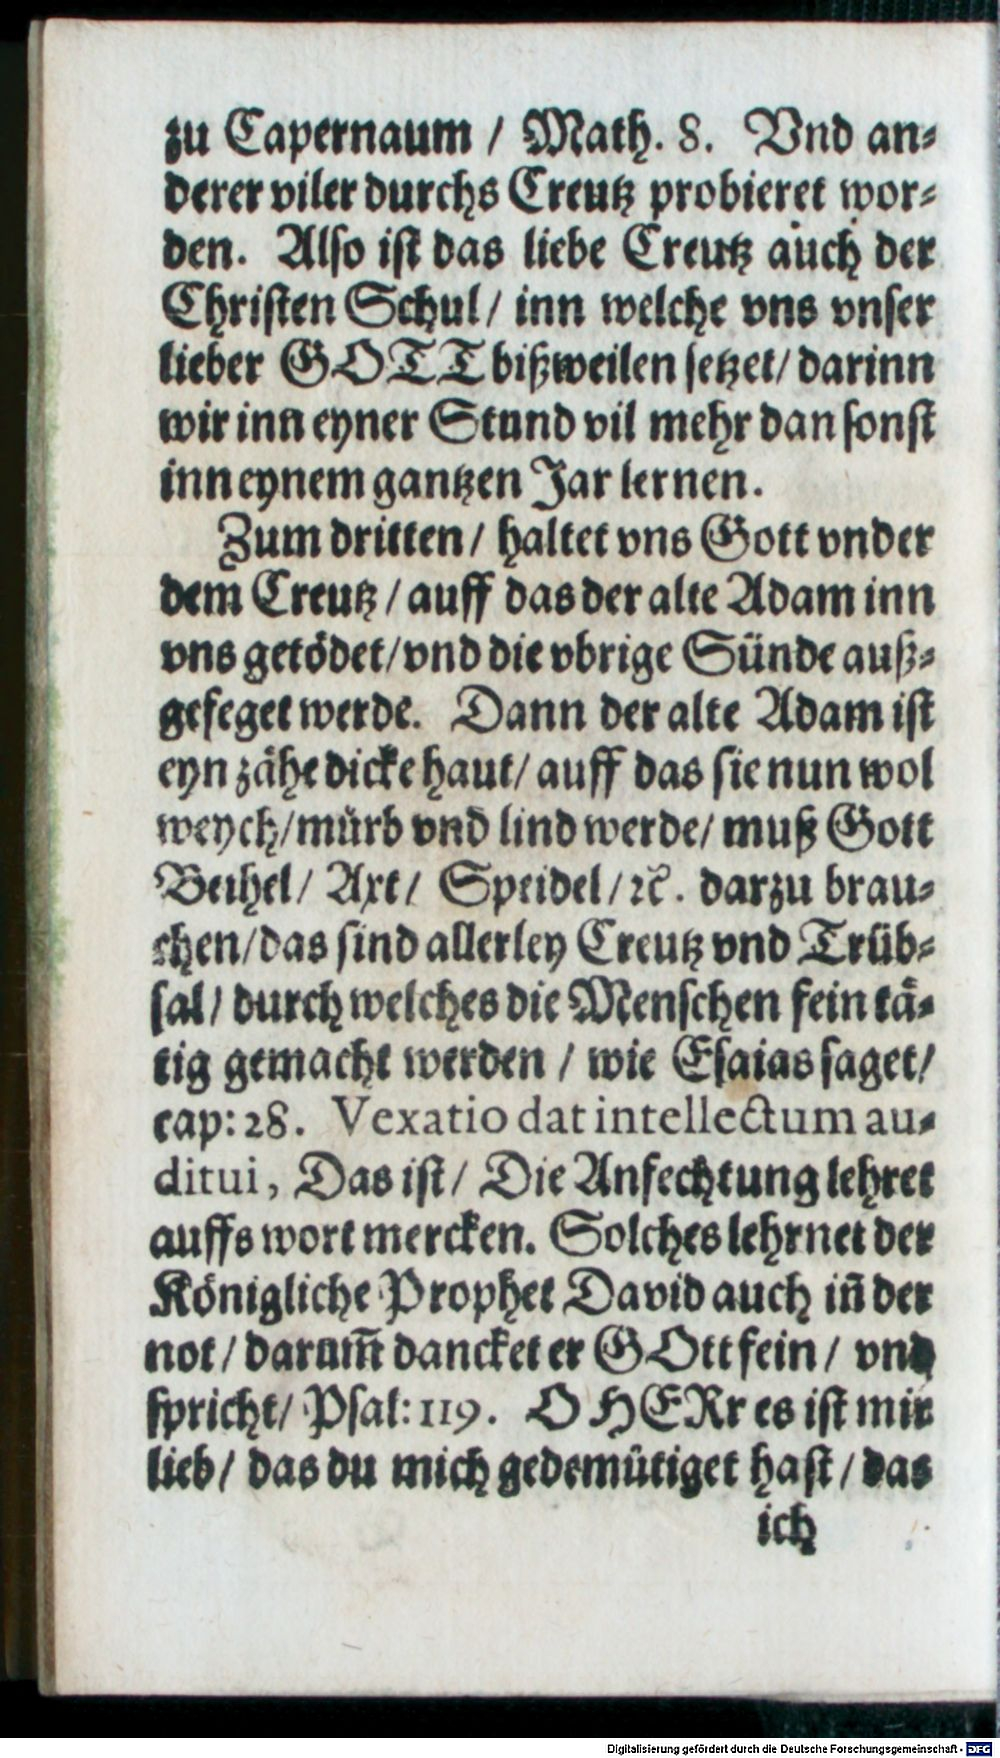 zu Capernaum / Math. 8. Vnd an-
derer viler durchs Creutz probieret wor-
den. Also ist das liebe Creutz auch der
Christen Schul / inn welche vns vnser
lieber GOTT bißweilen setzet / darinn
wir inn eyner Stund vil mehr dan sonst
inn eynem gantzen Jar lernen.
Zum dritten / haltet vns Gott vnder
dem Creutz / auff das der alte Adam inn
vns getödet / vnd die vbrige Sünde auß-
gefeget werde. Dann der alte Adam ist
eyn zähe dicke haut / auff das sie nun wol
weych / mürb vnd lind werde / muß Gott
Beihel / Axt / Speidel / ꝛc. darzu brau-
chen / das sind allerley Creutz vnd Trüb-
sal / durch welches die Menschen fein tä-
tig gemacht werden / wie Esaias saget /
cap: 28. Vexatio dat intellectum au-
ditui, Das ist / Die Anfechtung lehret
auffs wort mercken. Solches lehrnet der
Königliche Prophet David auch in̄ der
not / darum̄ dancket er GOtt fein / vnd
spricht / Psal: 119. O HERr es ist mir
lieb / das du mich gedemütiget hast / das
ich
Digitalisierung gefördert durch die Deutsche Forschungsgemeinschaft - DFG